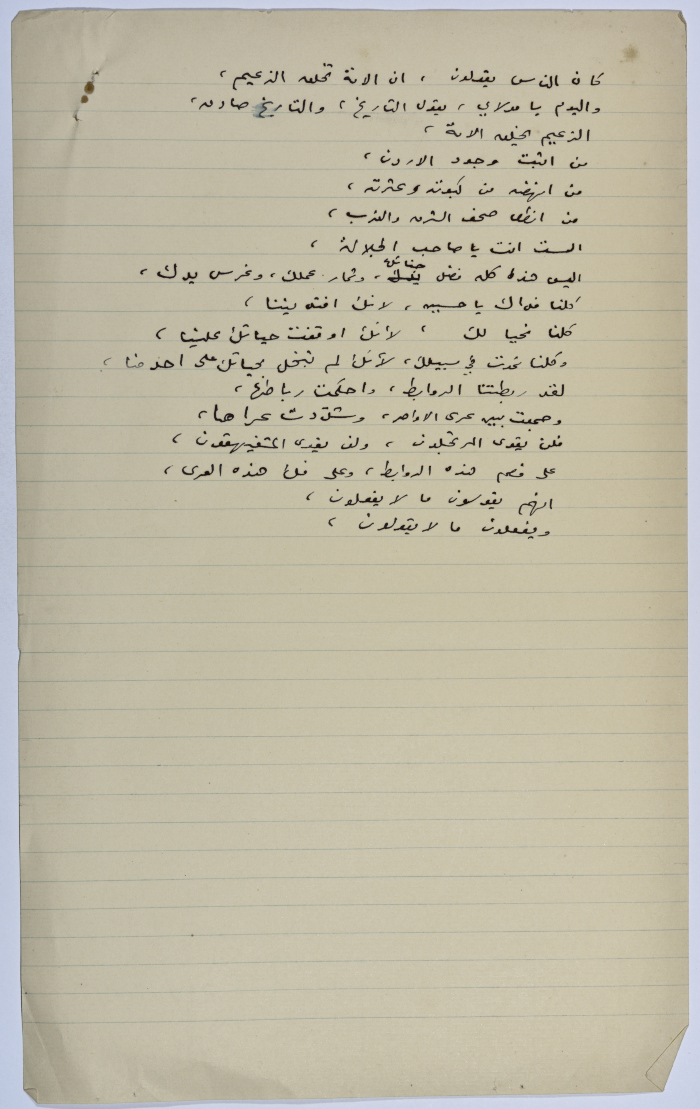 كان الناس يقولون ، ان الامة تخلق الزعيم ،
واليوم يا مولاي ، يقول التاريخ ، والتاريخ صادق ،
الزعيم يخلق الامة ،
من اثبت وجود الاردن ،
من انهضه من كبوته وعثرته ،
من انطق صحف الشرق والغرب ،
الست انت يا صاحب الجلالة ،
اليس هذا كله فضل ، وثمار عملك ، وغرس يدك ،
كلنا فداك يا حسين ، لانك افتديتنا ،
كلنا نحيا لك ، لأنك اوقفت حياتك علينا ،
وكلنا نموت في سبيلك ، لأنك لم تبخل بحياتك على احد منا ،
لقد ربطتنا الروابط ، واحكمت رباطها ،
وجمعت بين عرى الاواصر ، وشدّدت عراها ،
فلن يقوى المرتجلون ، ولن يقوى المتفيهقون ،
على فصم هذه الروابط ، وعلى فك هذه العرى ،
انهم يقولون ما لا يفعلون ،
ويفعلون ما لا يقولون ،